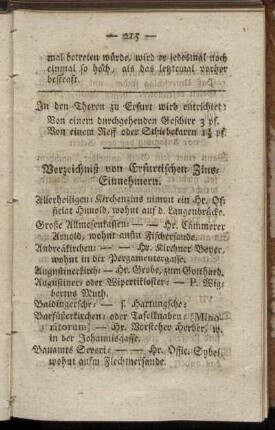 — 215 —
mal betreten würde, wird er jedesmal noch
einmal so hoch, als das letztemal vorher
bestraft.
In den Thoren zu Erfurt wird entrichtet:
Von einem durchgehenden Geschirr 3 pf.
Von einem Reff oder Schiebekarrn 1½ pf.
Verzeichniß von Erfurtischen Zins-
Einnehmern.
Allerheiligen: Kirchenzins nimmt ein Hr. Of-
fizial Hunold, wohnt auf d. Langenbrücke.
Große Allmosenkassen: — Hr. Cämmerer
Arnold, wohnt aufm Fischersande.
Andreäkirchen: — Hr. Kirchner Beyer,
wohnt in der Pergamentergasse.
Augustinerkirch — Hr. Grobe, zum Gotthard.
Augustiner: oder Wipertikloster: — P. Wig-
bertus Muth.
Baldingersche: — s. Hartungsche:
Barfüßerkirchen: oder Tafelknaben: (Mino-
ritorum) — Hr. Vorsteher Herber, w.
in der Johannisgasse.
Bauamts Severi: — — Hr. Offic. Sybel,
wohnt aufm Flechmersande.